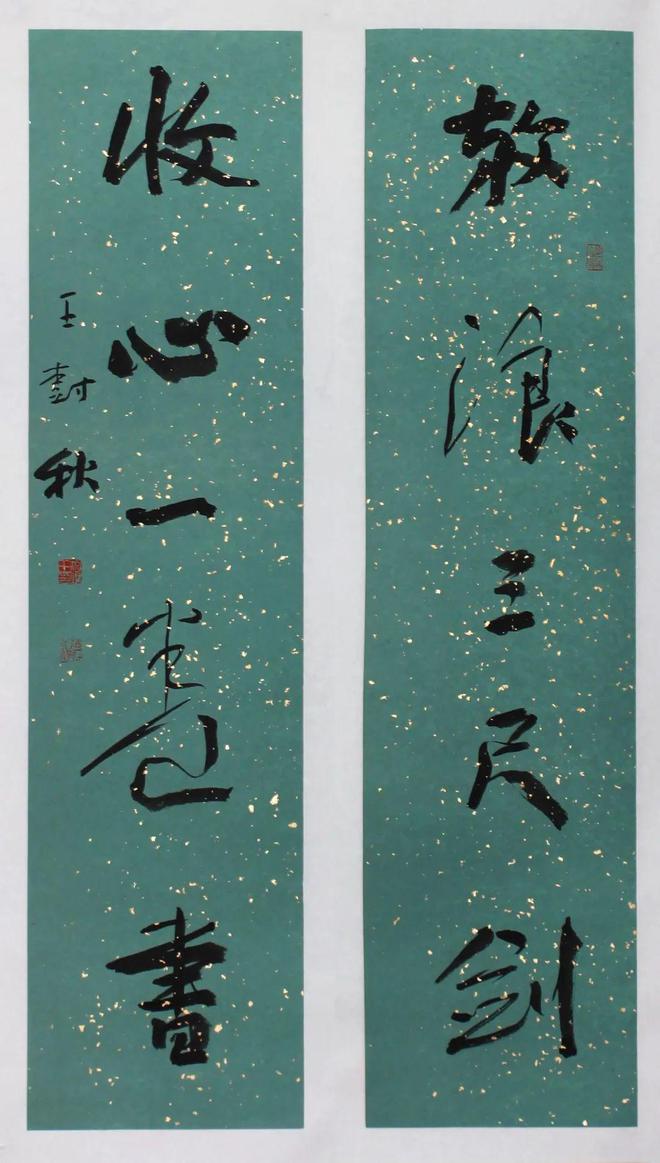 放浪三尺剑
收心一卷书
王封秋